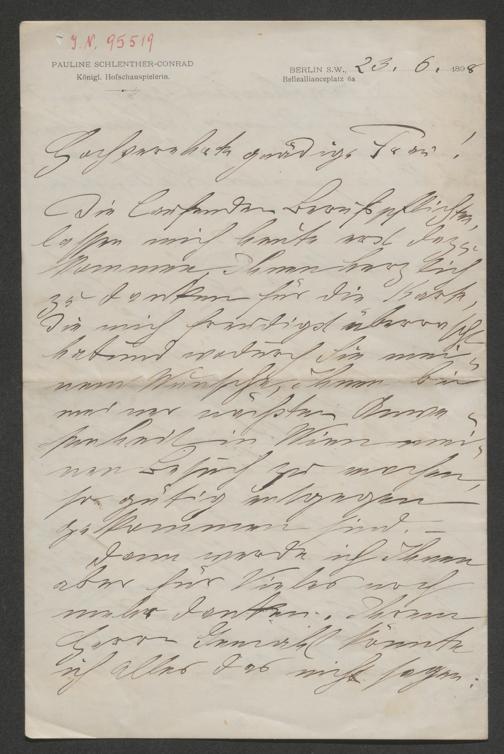 J. N. 95519
PAULINE SCHLENTHER-CONRAD
Königl. Hofschauspielerin.
BERLIN S.W., 23. 6. 1898
Belleallianceplatz 6a
Hochverehrte gnädige Frau!
Die laufenden Berufspflichten
lassen mich heute erst dazu
kommen, Ihnen herzlich
zu danken für die Karte,
die mich freudigst überrascht
hat und wodurch Sie mei-
nem Wunsche, Ihnen bei
meiner nächsten Anwe-
senheit in Wien mei-
nen Besuch zu machen,
so gütig entgegen
gekommen sind. —
Dann werde ich Ihnen
aber für Vieles noch
mehr danken. Ihrem
Herrn Gemahl könnte
ich alles das nicht sagen: